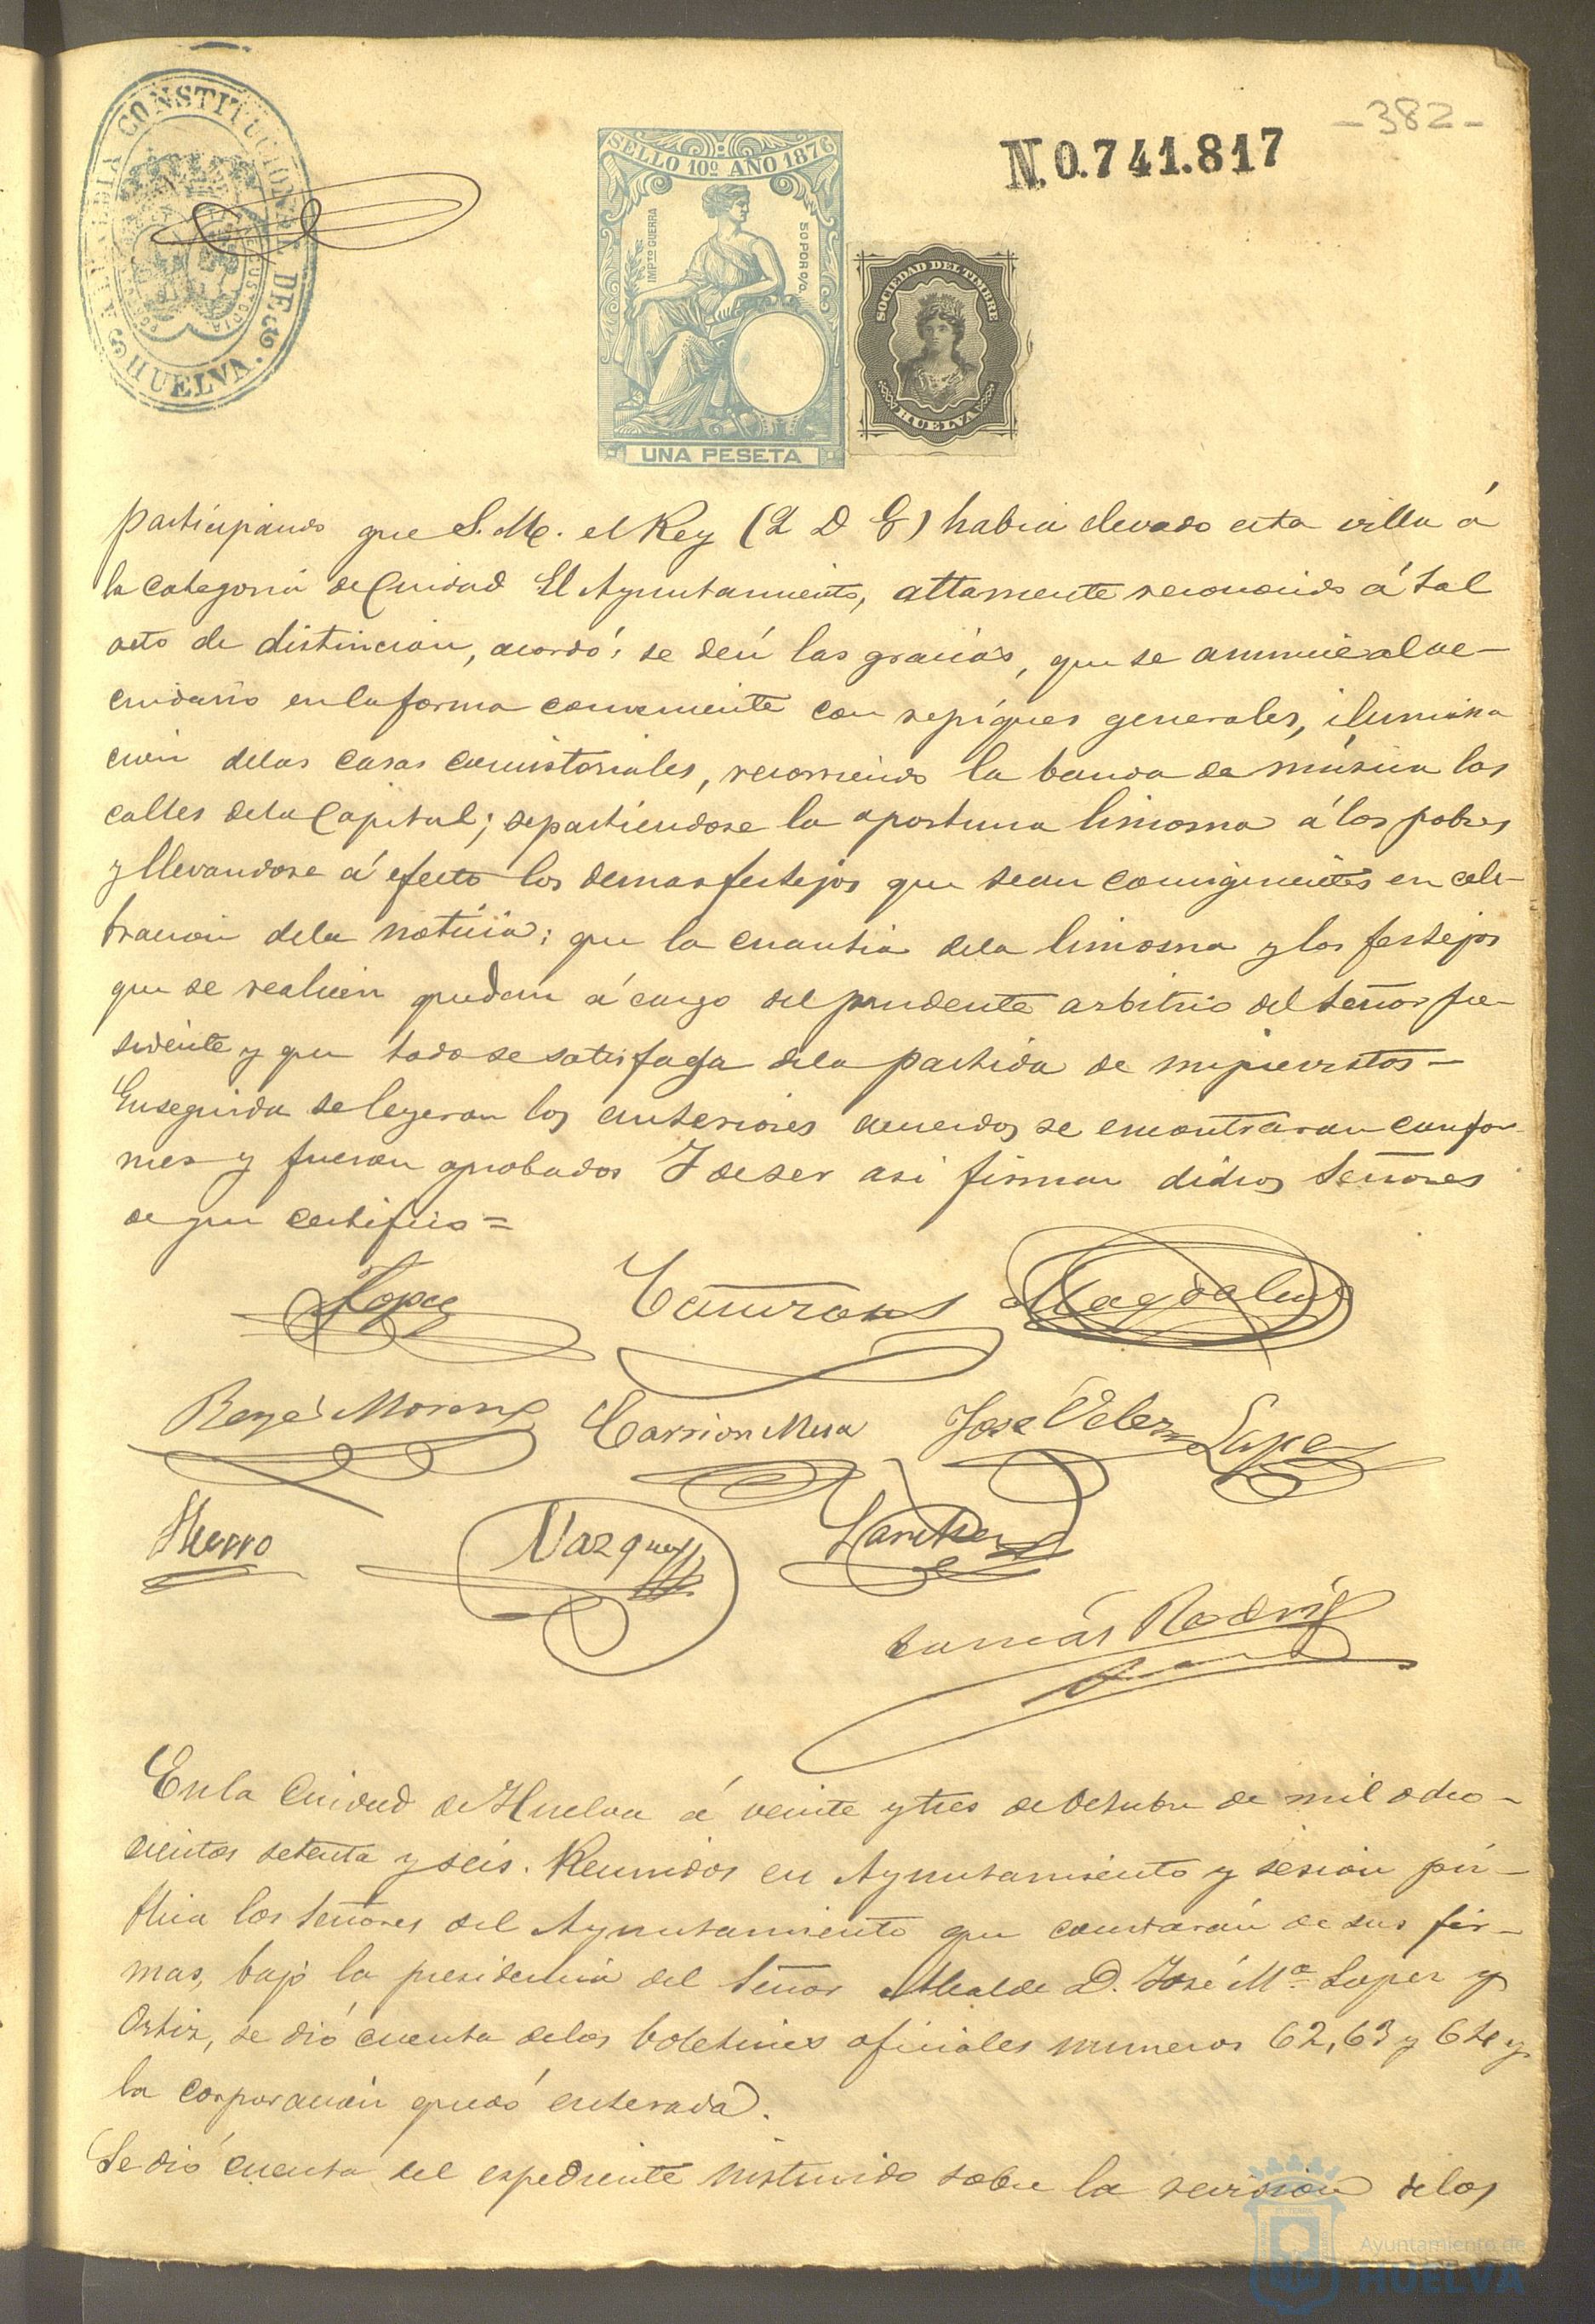 -382-
ALCALDIA CONSTITUCIONAL DE HUELVA
SELLO 10º AÑO 1876
IMPTO GUERRA
50 POR 0/0.
UNA PESETA
N.0.741.817
SOCIEDAD DEL TIMBRE
HUELVA
participando que S. M. el Rey (Q D G) habia elevado esta villa á
la categoria de Ciudad El Ayuntamiento, altamente reconocido á tal
acto de distincion, acordó: se den las gracias, que se anuncie al ve-
cindario en la forma conveniente con repiques generales, ilumina
cion de las casas consistoriales, recorriendo la banda de música las
calles de la Capital; repartiendose la oportuna limosna á los pobres
y llevandose á efecto los demas festejos que sean consiguientes en cele-
bracion de la noticia; que la cuantia de la limosna y los festejos
que se realicen quedan á cargo del prudente arbitrio del Señor Pre-
sidente y que todo se satisfaga de la partida de imprevistos-
Enseguida se leyeron los anteriores acuerdos se encontraron confor-
mes y fueron aprobados Y de ser asi firman dichos Señores
de que certifico=
Lopez
Magdalena
Moreno Carrion Mesa Jose Velez Lopez
Hierro Vazquez Sanchez
Tomás Rodrig
En la Ciudad de Huelva á veinte y tres de Octubre de mil ocho-
cientos setenta y seis. Reunidos en Ayuntamiento y sesion pú-
blica los Señores del Ayuntamiento que constarán de sus fir-
mas, bajo la presidencia del Señor Alcalde D. José Mª Lopez y
Ortiz, se dió cuenta de los boletines oficiales numeros 62, 63 y 64 y
la corporación quedó enterada.
Se dió cuenta del espediente instruido sobre la revision de los
Ayuntamiento de
HUELVA